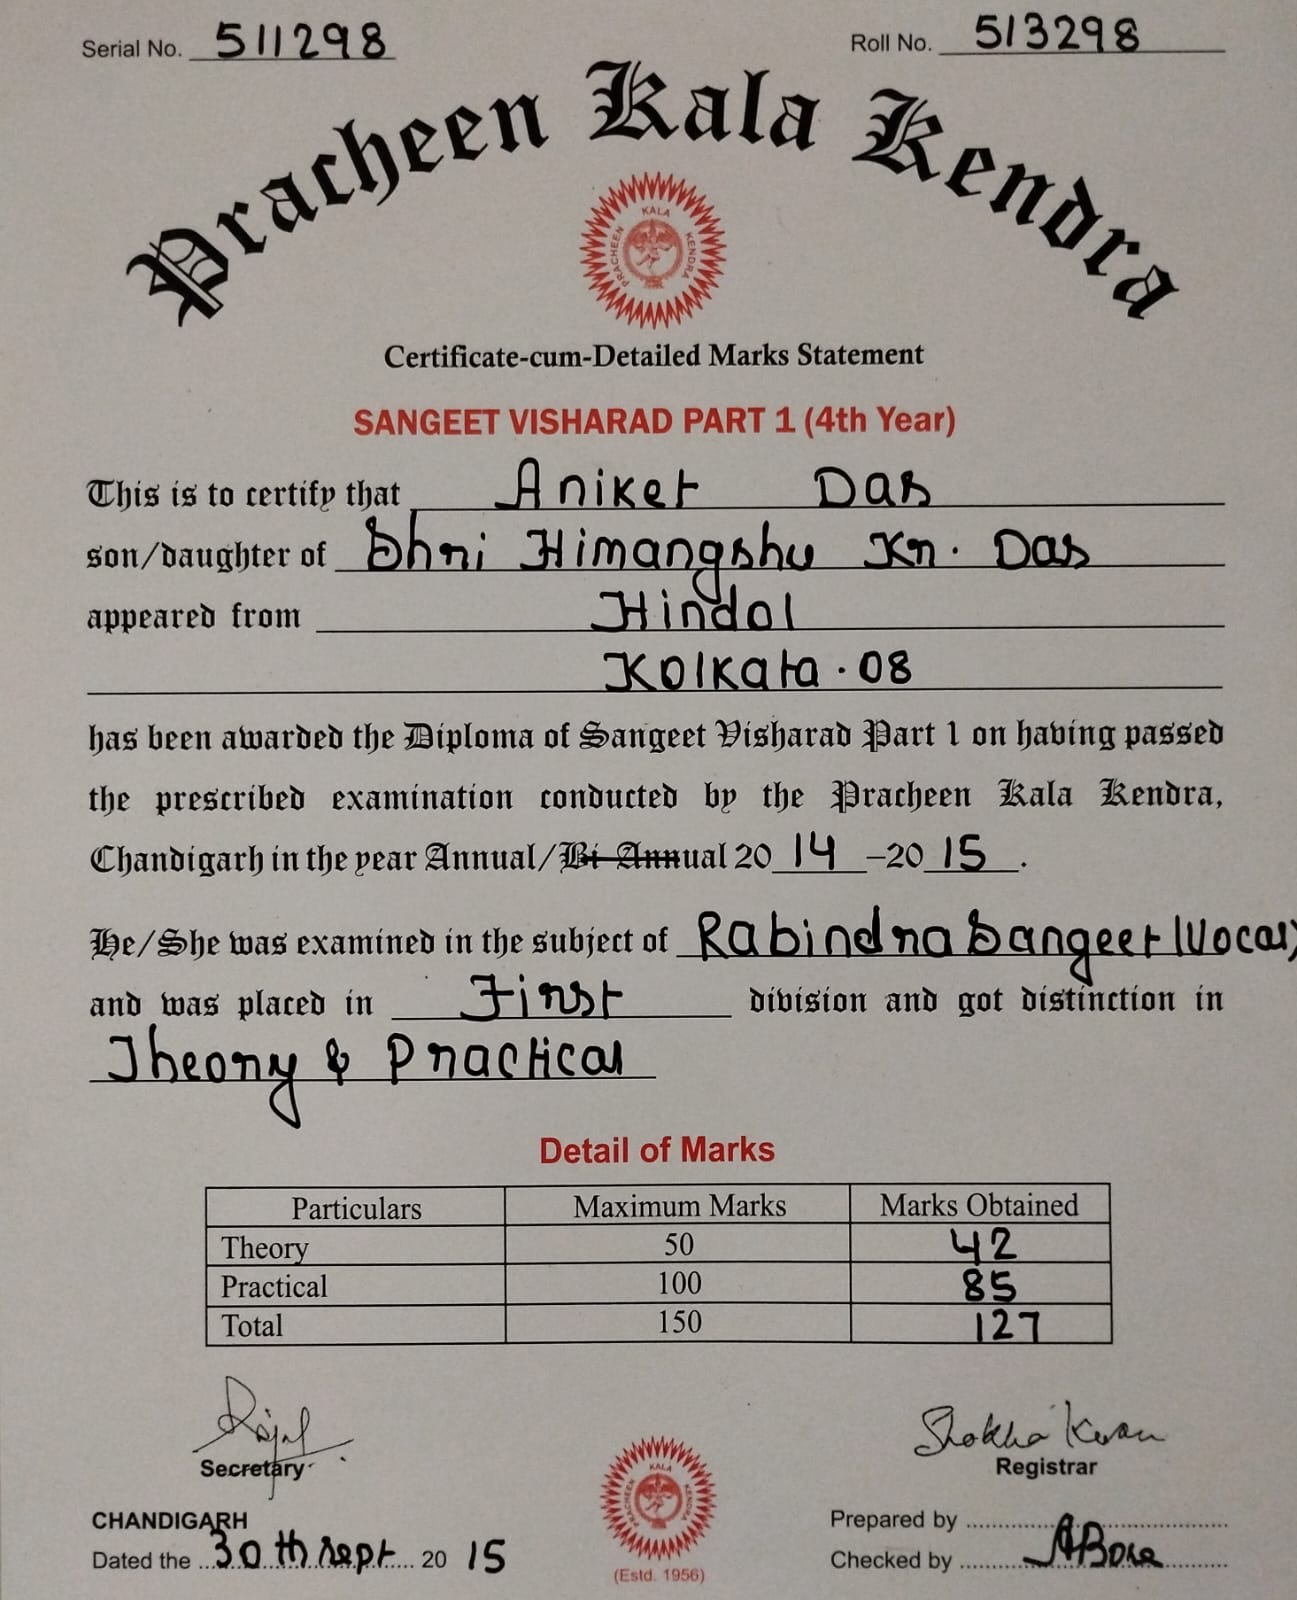 Serial No. 511298
Roll No. 513298
Pracheen Kala Kendra
PRACHEEN KALA KENDRA
Certificate-cum-Detailed Marks Statement
SANGEET VISHARAD PART 1 (4th Year)
This is to certify that Aniket Das
son/daughter of Shri Himangshu Kr. Das
appeared from Hindol
Kolkata . 08
has been awarded the Diploma of Sangeet Visharad Part 1 on having passed
the prescribed examination conducted by the Pracheen Kala Kendra,
Chandigarh in the year Annual/Bi-Annual 20 14 –20 15 .
He/She was examined in the subject of Rabindra Sangeet (Vocal)
and was placed in First division and got distinction in
Theory & Practical
Detail of Marks
Particulars Maximum Marks Marks Obtained
Theory 50 42
Practical 100 85
Total 150 127
Secretary
Registrar
PRACHEEN KALA KENDRA
CHANDIGARH
Dated the 30th Sept 20 15
(Estd. 1956)
Prepared by
Checked by ABose